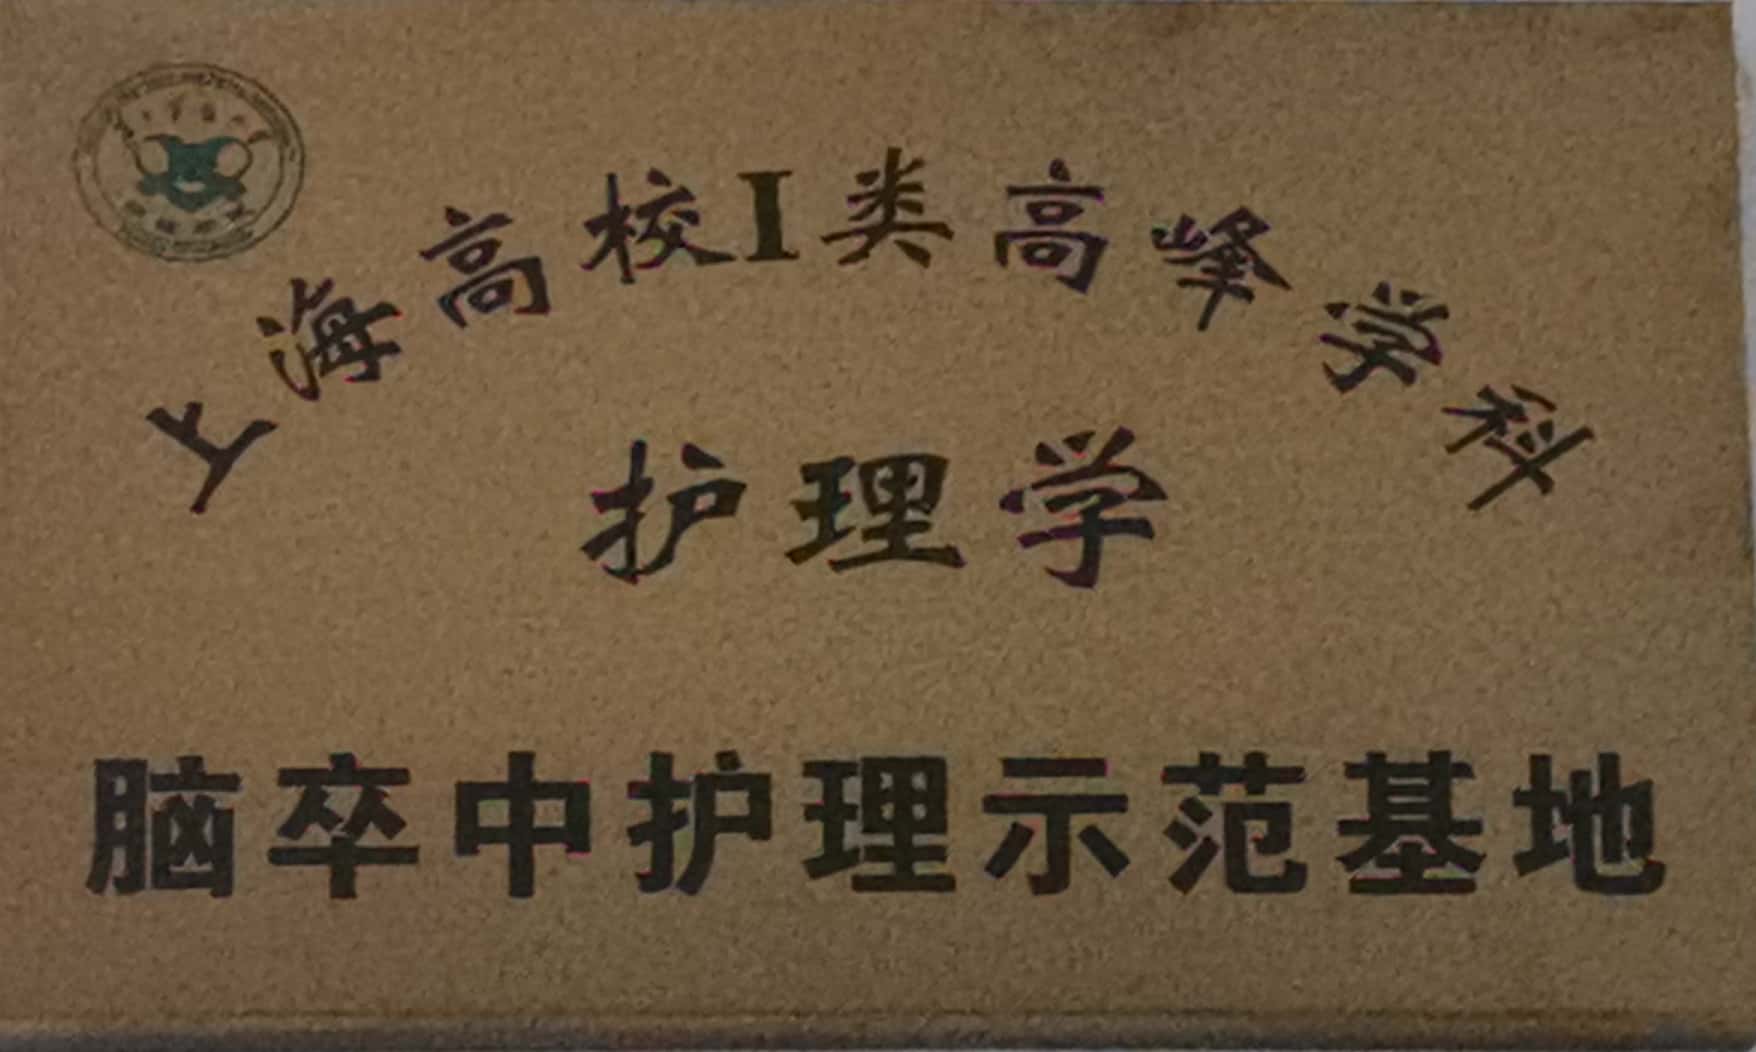 上海高校I类高峰学科
护理学
脑卒中护理示范基地